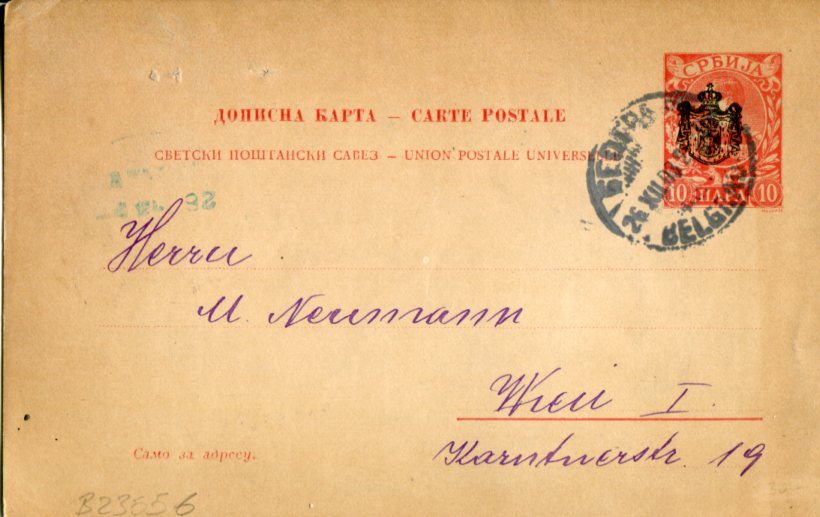 СРБИЈА
ДОПИСНА КАРТА — CARTE POSTALE
СВЕТСКИ ПОШТАНСКИ САВЕЗ — UNION POSTALE UNIVERSELLE
10 ПАРА 10
БЕОГРАД
26 XII
BELGRADE
26
Herrn
M. Neumann
Wien I.
Karntnerstr. 19
Само за адресу.
B23656